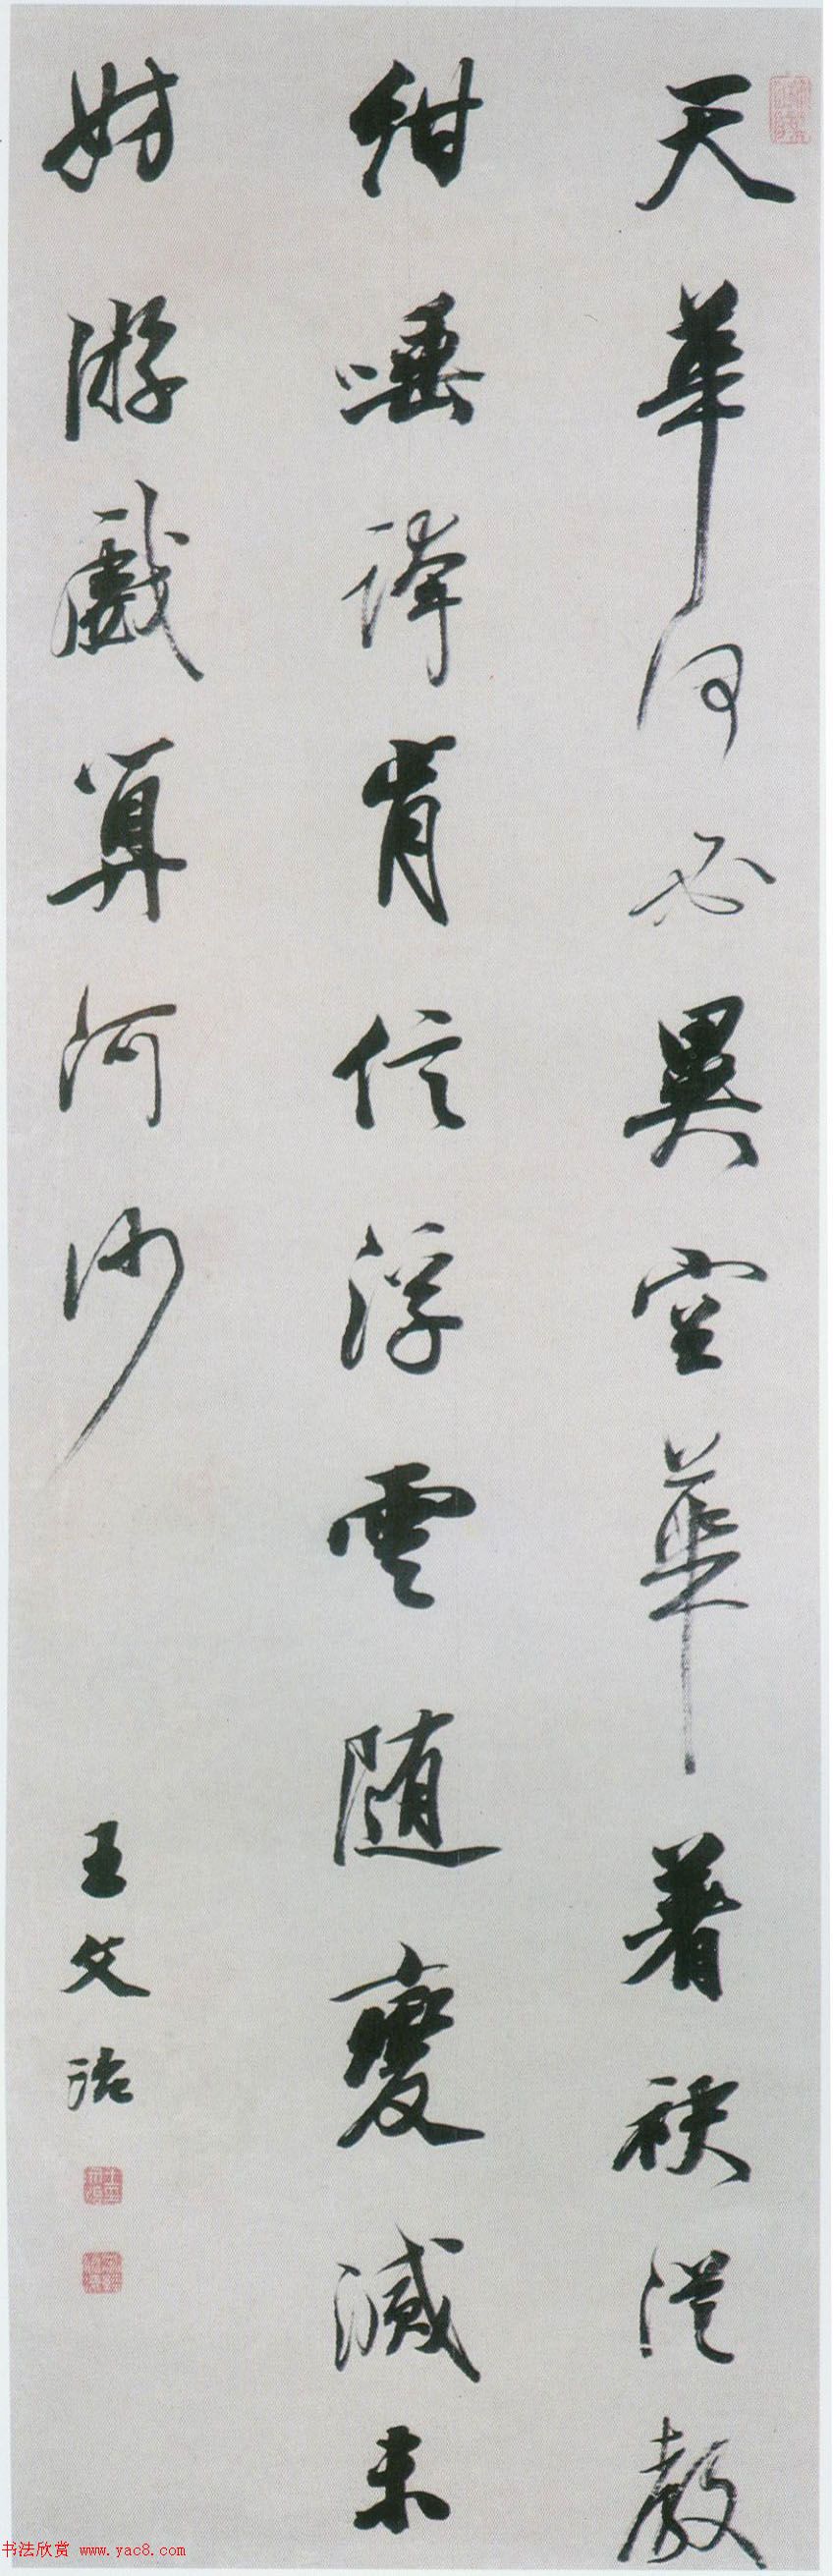 天華何必異空華著袂從教
紺唾譁肯信浮雲随變滅未
妨游戲算河沙
王文治
书法欣赏 www.yac8.com